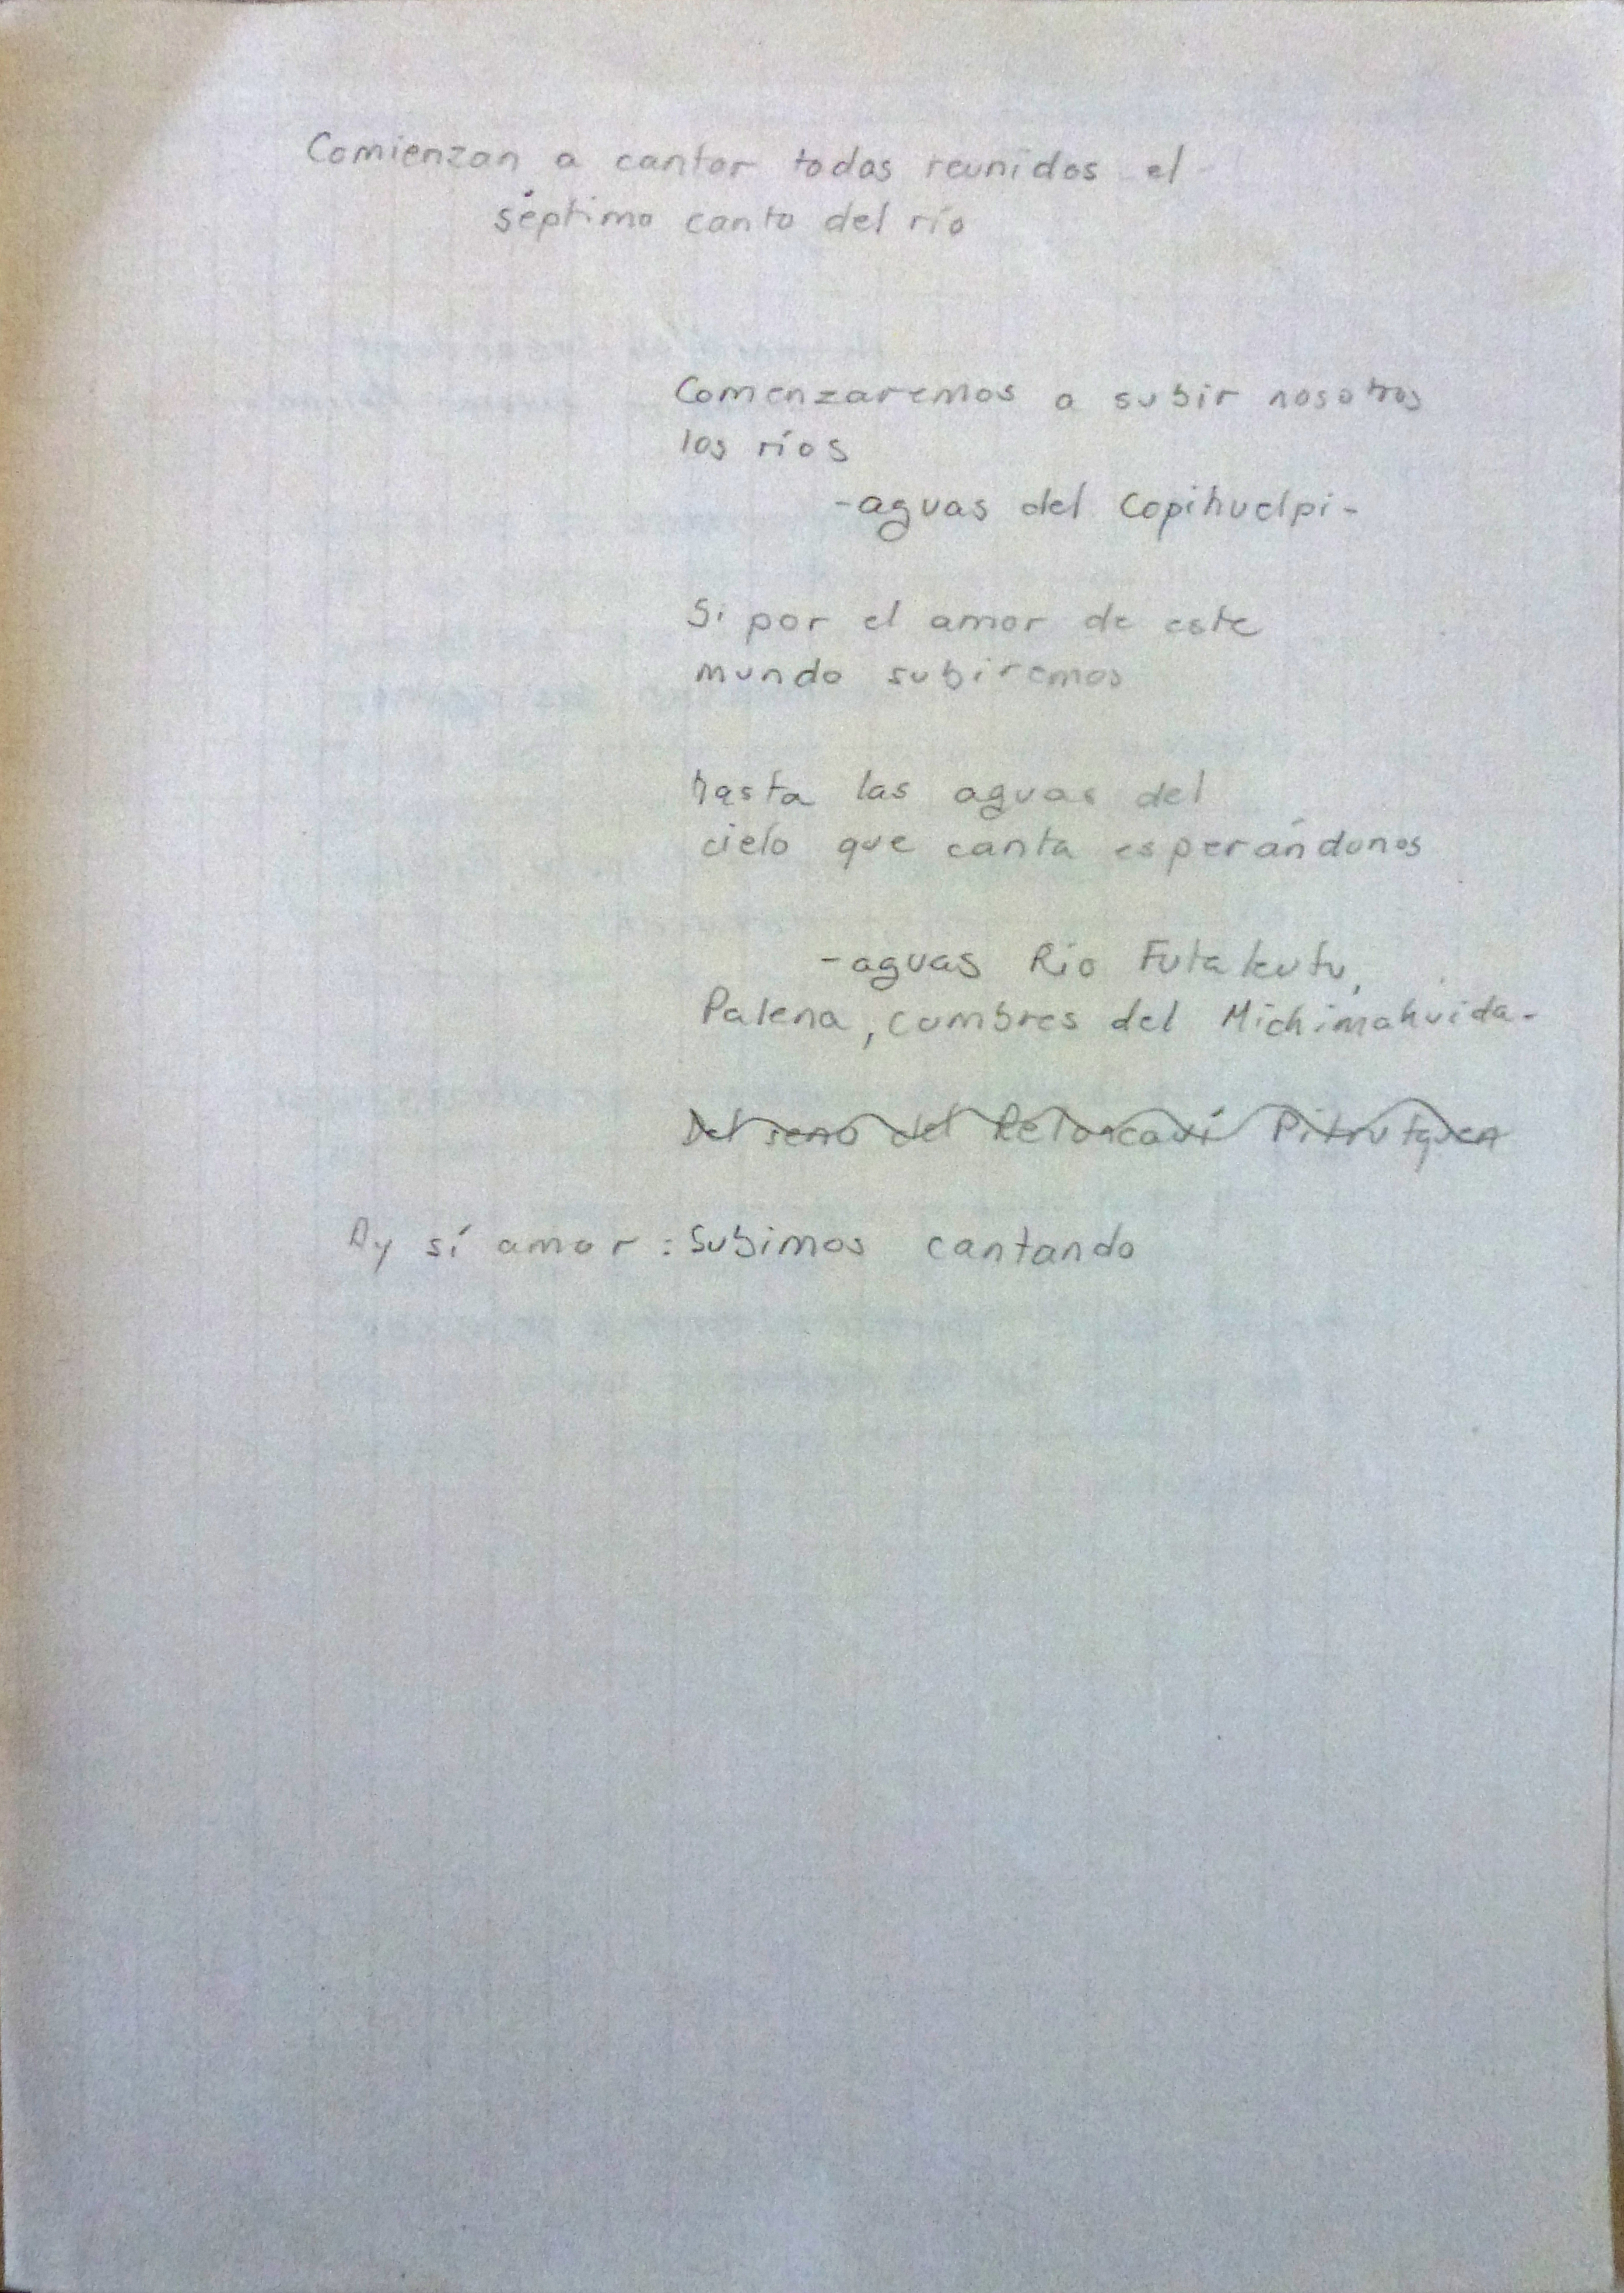 Comienzan a cantar todos reunidos el
séptimo canto del río
Comenzaremos a subir nosotros
los ríos
-aguas del Copihuelpi-
Si por el amor de este
mundo subiremos
hasta las aguas del
cielo que canta esperándonos
-aguas Río Futakufu,
Palena, cumbres del Michimahuida-
Del seno del Reloncaví Pitrufquen
Ay sí amor: Subimos cantando